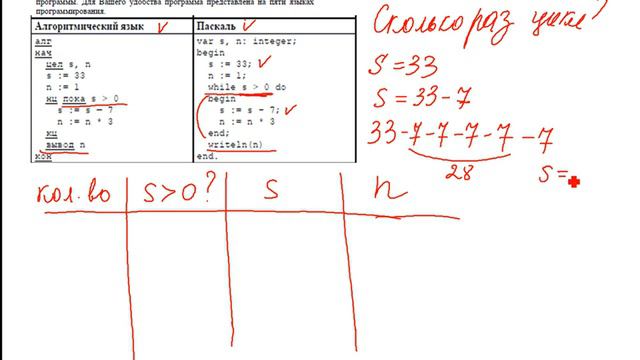 программы. Для Вашего удобства программа представлена на пяти языках
программирования.
Алгоритмический язык
алг
нач
цел s, n
s := 33
n := 1
нц пока s > 0
s := s – 7
n := n * 3
кц
вывод n
кон
Паскаль
var s, n: integer;
begin
s := 33;
n := 1;
while s > 0 do
begin
s := s – 7;
n := n * 3
end;
writeln(n)
end.
Сколько раз цикл?
S = 33
S = 33 - 7
33 - 7 - 7 - 7 - 7 - 7
28
S =
кол.во
S > 0 ?
S
n